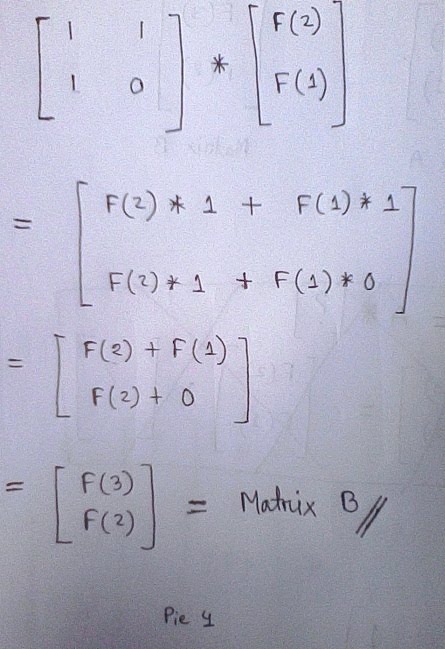 [ 1 1 ] * [ F(2) ]
[ 1 0 ] [ F(1) ]
= [ F(2) * 1 + F(1) * 1 ]
[ F(2) * 1 + F(1) * 0 ]
= [ F(2) + F(1) ]
[ F(2) + 0 ]
= [ F(3) ] = Matrix B //
[ F(2) ]
Pic 4